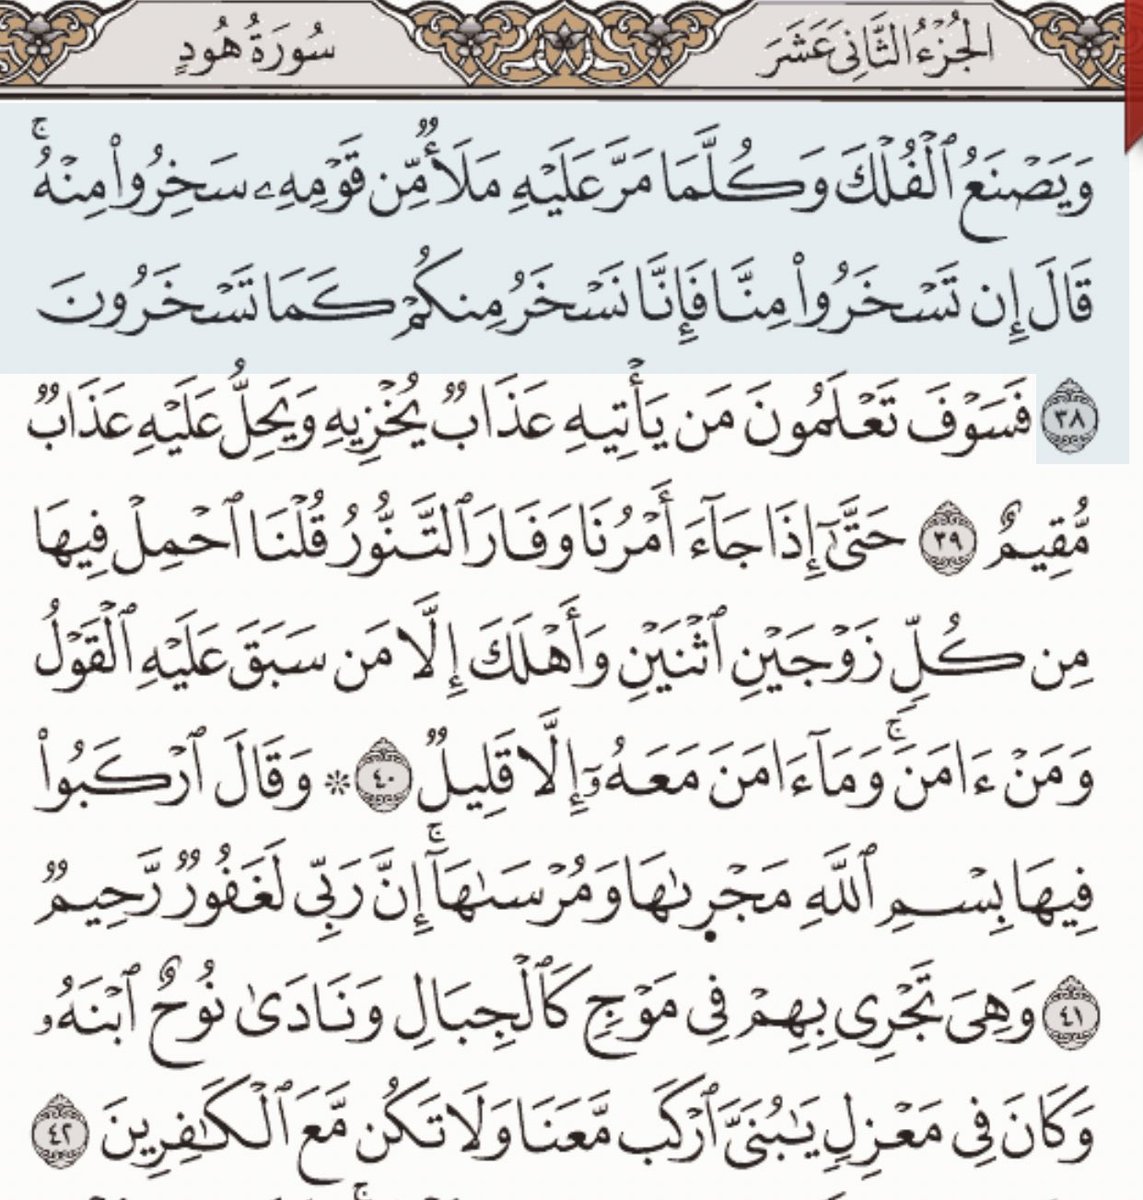 الجُزْءُ الثَّانِي عَشَرَ سُورَةُ هُودٍ
وَيَصْنَعُ ٱلْفُلْكَ وَكُلَّمَا مَرَّ عَلَيْهِ مَلَأٌ مِّن قَوْمِهِۦ سَخِرُواْ مِنْهُۚ
قَالَ إِن تَسْخَرُواْ مِنَّا فَإِنَّا نَسْخَرُ مِنكُمْ كَمَا تَسْخَرُونَ
٣٨ فَسَوْفَ تَعْلَمُونَ مَن يَأْتِيهِ عَذَابٌ يُخْزِيهِ وَيَحِلُّ عَلَيْهِ عَذَابٌ
مُّقِيمٌ ٣٩ حَتَّىٰٓ إِذَا جَآءَ أَمْرُنَا وَفَارَ ٱلتَّنُّورُ قُلْنَا ٱحْمِلْ فِيهَا
مِن كُلِّ زَوْجَيْنِ ٱثْنَيْنِ وَأَهْلَكَ إِلَّا مَن سَبَقَ عَلَيْهِ ٱلْقَوْلُ
وَمَنْ ءَامَنَۚ وَمَآ ءَامَنَ مَعَهُۥٓ إِلَّا قَلِيلٌ ٤٠ ۞ وَقَالَ ٱرْكَبُواْ
فِيهَا بِسْمِ ٱللَّهِ مَجْر۪ىٰهَا وَمُرْسَىٰهَآۚ إِنَّ رَبِّي لَغَفُورٌ رَّحِيمٌ
٤١ وَهِيَ تَجْرِي بِهِمْ فِي مَوْجٍ كَٱلْجِبَالِ وَنَادَىٰ نُوحٌ ٱبْنَهُۥ
وَكَانَ فِي مَعْزِلٍ يَٰبُنَيَّ ٱرْكَب مَّعَنَا وَلَا تَكُن مَّعَ ٱلْكَٰفِرِينَ ٤٢